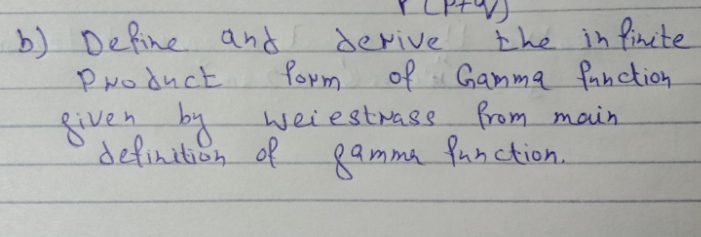 Γ(p+q)
b) Define and derive the infinite
Product form of Gamma function
given by weiestrass from main
definition of gamma function.